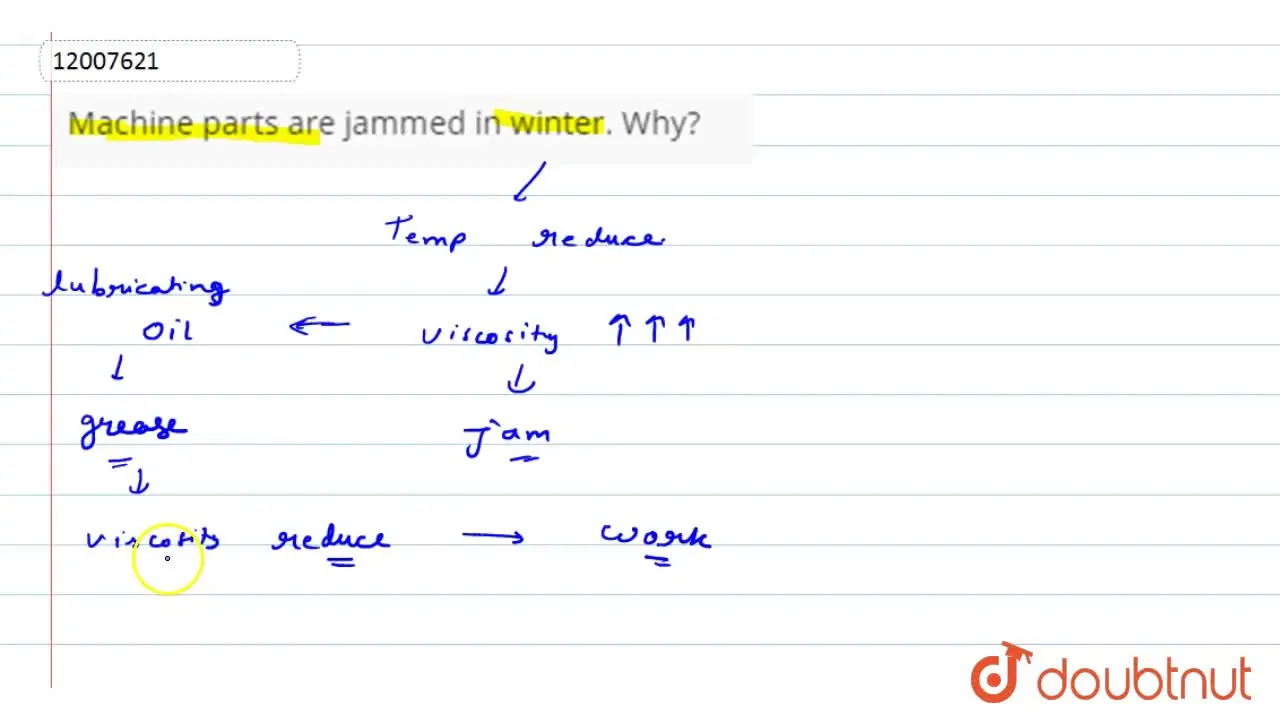 12007621
Machine parts are jammed in winter. Why?
Temp reduce
lubricating
oil ← viscosity ↑ ↑ ↑
grease
Jam
viscosity reduce → work
doubtnut